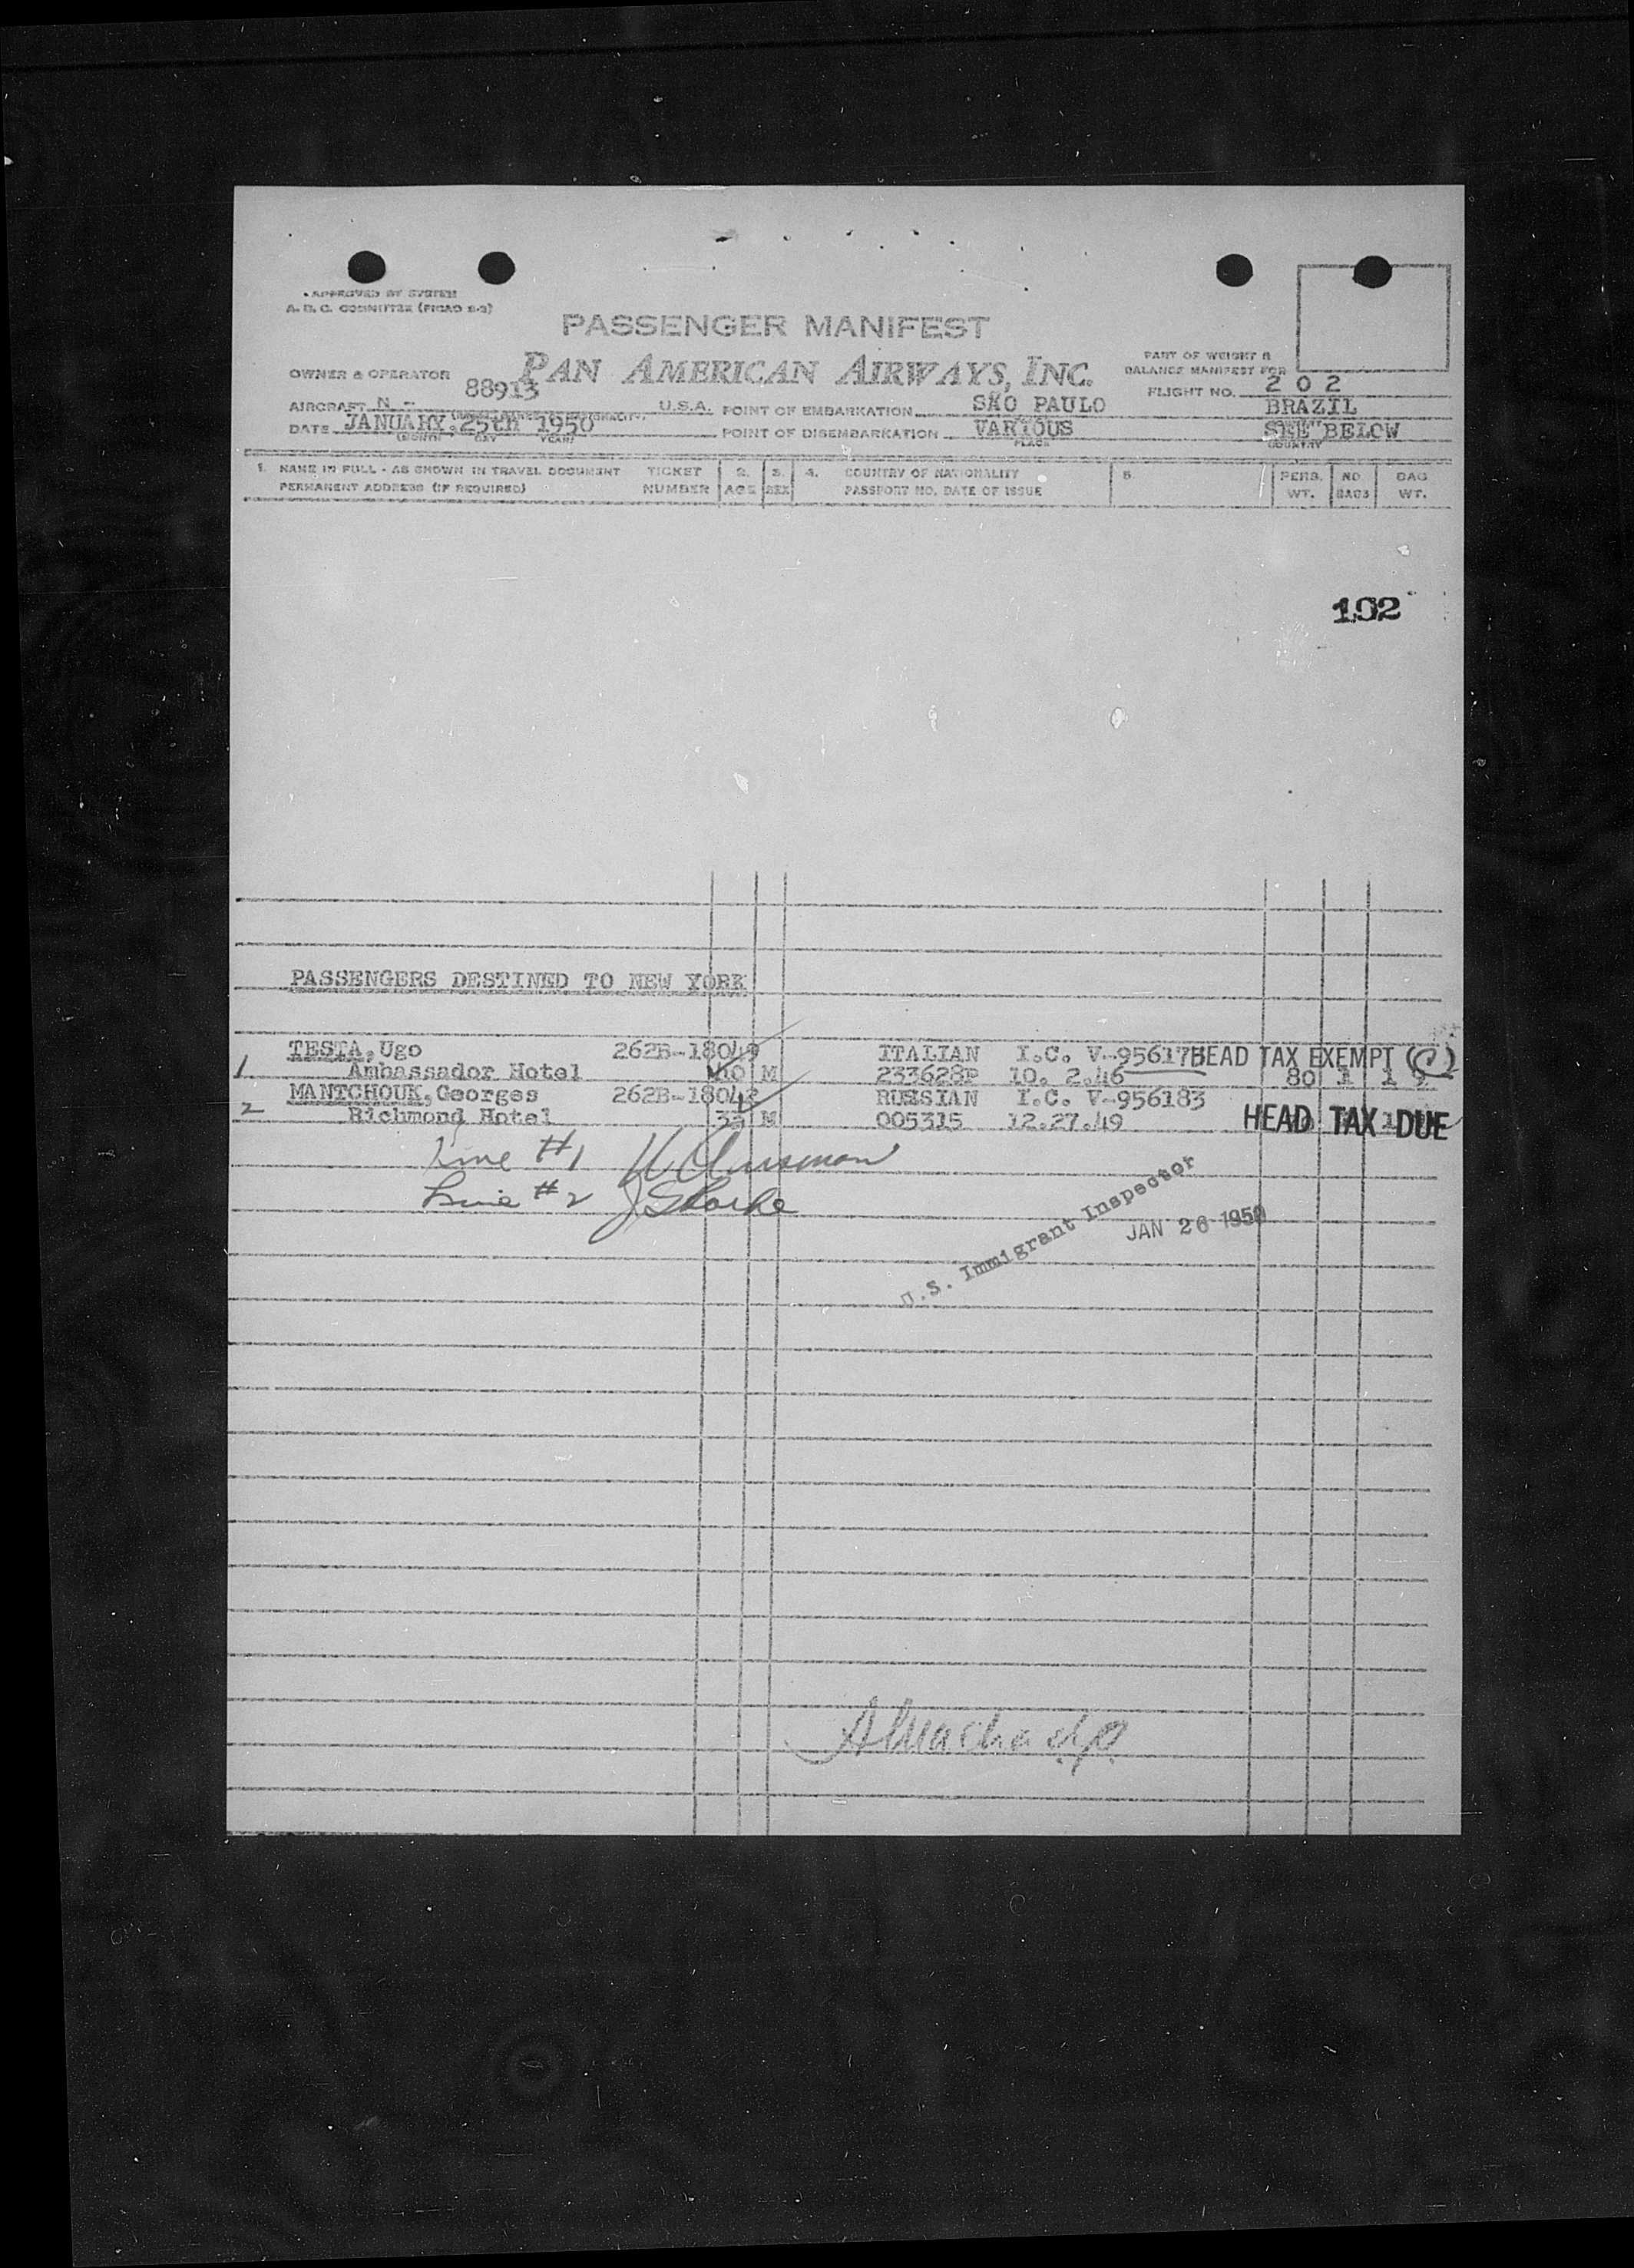 APPROVED BY SYSTEM
A. D. C. COMMITTEE (PICAO 2-3)
PASSENGER MANIFEST
OWNER & OPERATOR PAN AMERICAN AIRWAYS, INC.
PART OF WEIGHT &
BALANCE MANIFEST FOR
FLIGHT NO. 2 0 2
AIRCRAFT N - 88913 U.S.A. POINT OF EMBARKATION SÃO PAULO BRAZIL
DATE JANUARY 25th 1950 POINT OF DISEMBARKATION VARIOUS SEE BELOW
(MONTH DAY YEAR) PLACE COUNTRY
1. NAME IN FULL - AS SHOWN IN TRAVEL DOCUMENT TICKET 2. 3. 4. COUNTRY OF NATIONALITY 5. PERS. NO BAG
PERMANENT ADDRESS (IF REQUIRED) NUMBER AGE SEX PASSPORT NO. DATE OF ISSUE WT. BAGS WT.
102
PASSENGERS DESTINED TO NEW YORK
TESTA, Ugo 262B-18049 ITALIAN I.C. V-95617 HEAD TAX EXEMPT
1 Ambassador Hotel 40 M 233628P 10. 2.46 80 1
MANTCHOUK, Georges 262B-18042 RUSSIAN I.C. V-956183
2 Richmond Hotel 33 M 005315 12.27.49 HEAD TAX DUE
Line #1
Line #2
U.S. Immigrant Inspector
JAN 26 1950